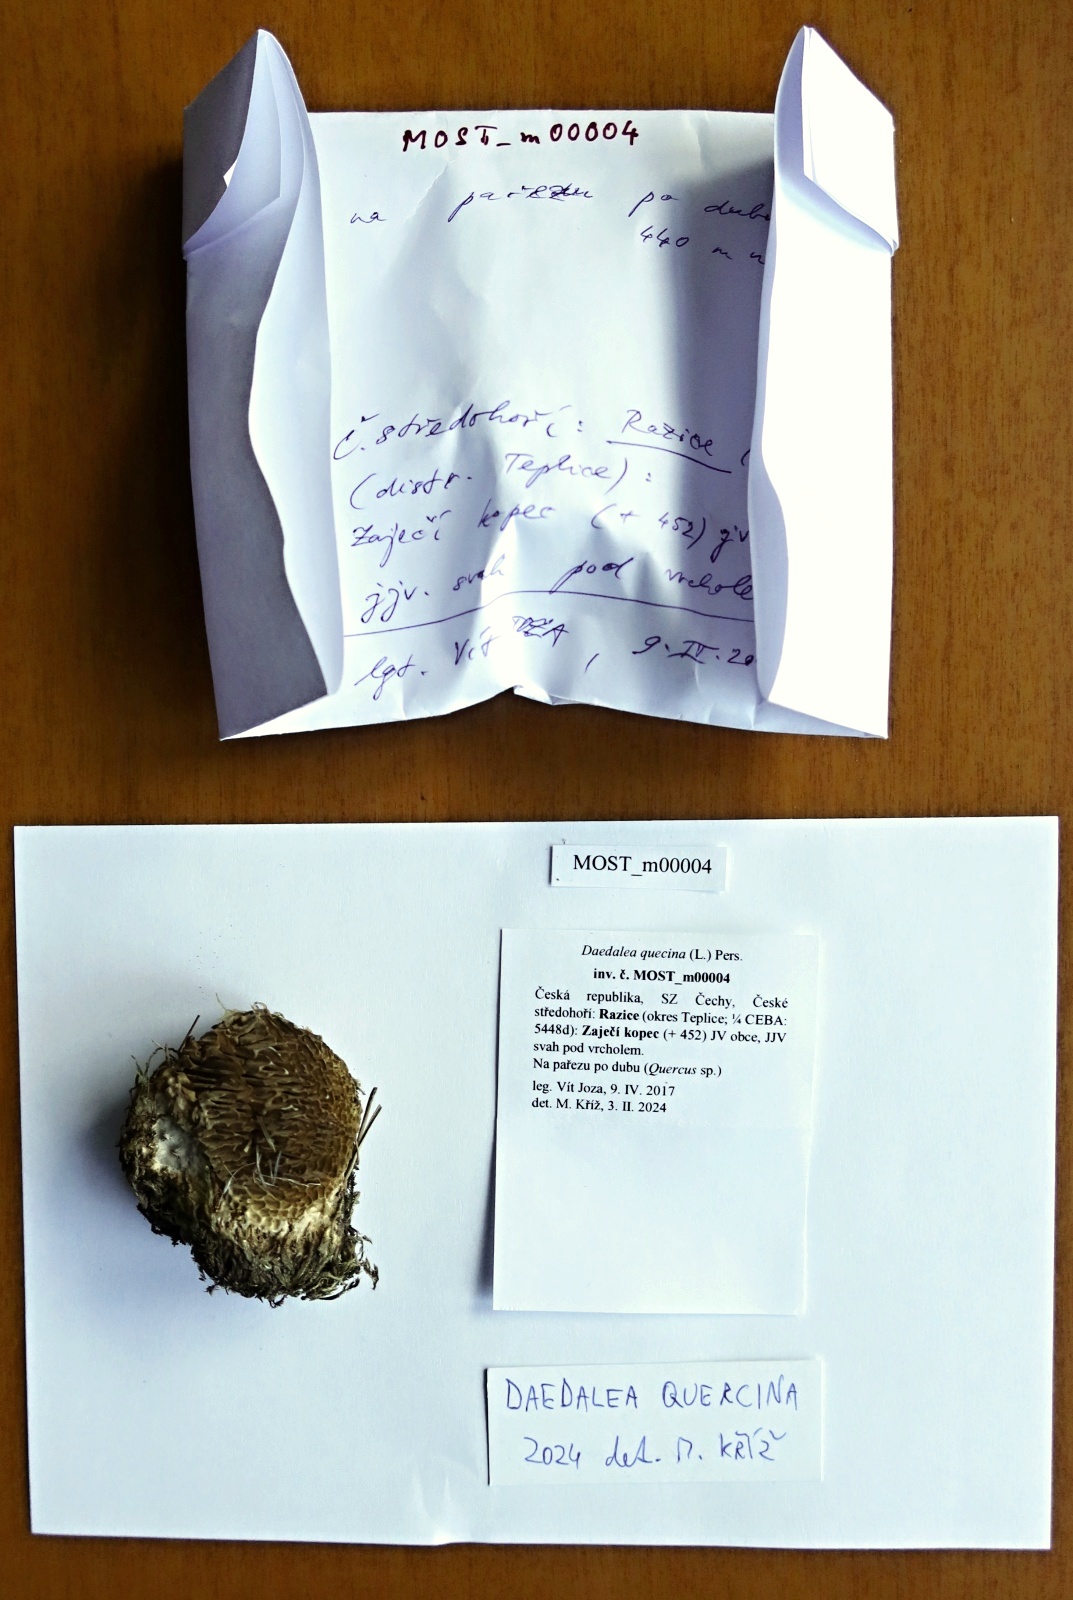 MOST_m00004
na pařezu po dubu
440 m n
Č. středohoří: Razice (
(distr. Teplice):
Zaječí kopec (+ 452) jv
jjv. svah pod vrchole
lgt. Vít JOZA, 9.IV.20
MOST_m00004
Daedalea quecina (L.) Pers.
inv. č. MOST_m00004
Česká republika, SZ Čechy, České
středohoří: Razice (okres Teplice; ¼ CEBA:
5448d): Zaječí kopec (+ 452) JV obce, JJV
svah pod vrcholem.
Na pařezu po dubu (Quercus sp.)
leg. Vít Joza, 9. IV. 2017
det. M. Kříž, 3. II. 2024
DAEDALEA QUERCINA
2024 det. M. KŘÍŽ